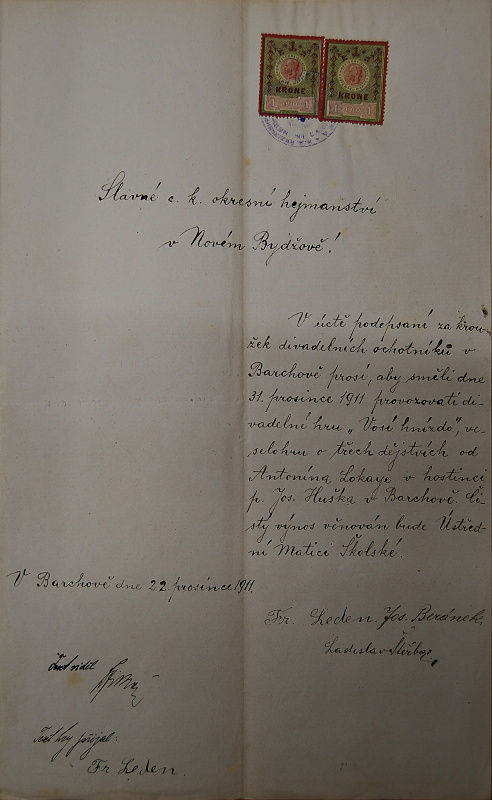 1 1
KRONE KRONE
1 1
Slavné c. k. okresní hejmanství
v Novém Bydžově!
V úctě podepsaní za krou-
žek divadelních ochotníků v
Barchově prosí, aby směli dne
31. prosince 1911 provozovati di-
vadelní hru „Vosí hnízdo“, ve-
selohru o třech dějstvích od
Antonína Lokaye v hostinci
p. Jos. Huška v Barchově. Či-
stý výnos věnován bude Ústřed-
ní Matici Školské.
V Barchově dne 22. prosince 1911.
Fr. Leden. Jos. Beránek,
Ladislav
Text viděl
Text hry přijal:
Fr Leden.